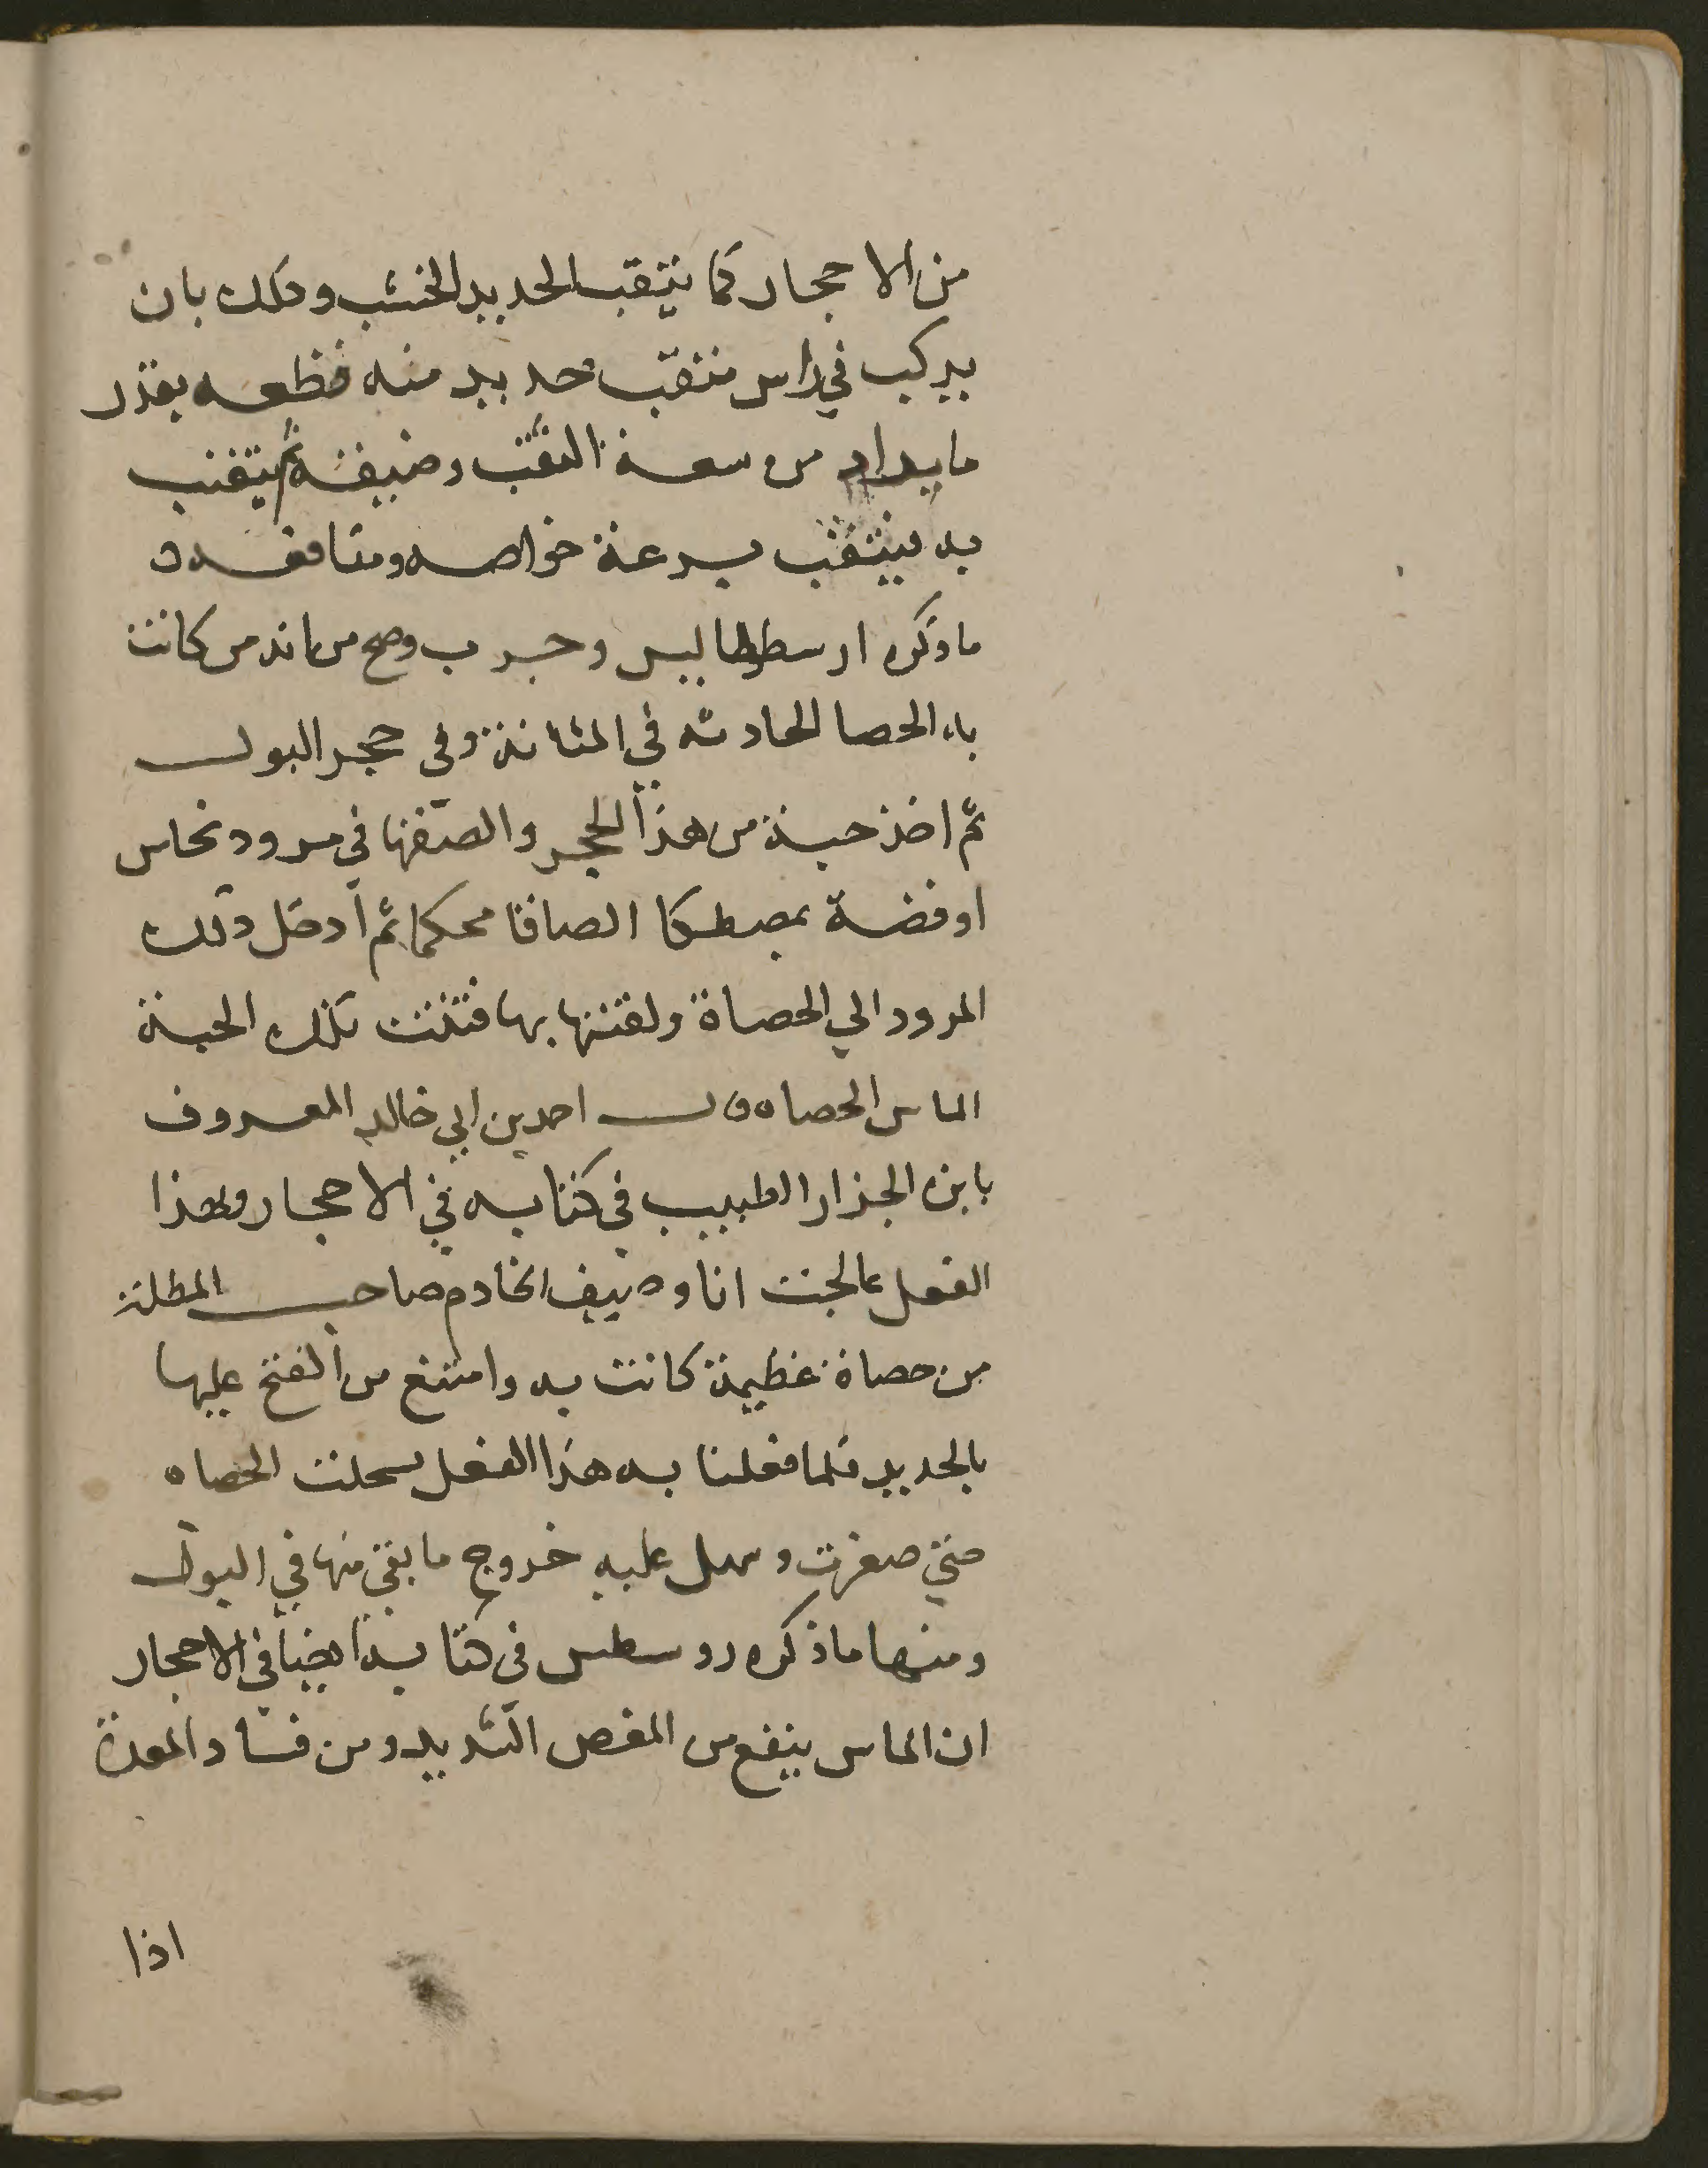 من الاحجار كما يثقب الحديد الخشب وذلك بان
يركب في راس مثقب حديد منه قطعه بقدر
ما يراد من سعة الثقب وضيقه ثم يثقب
به فيثقب بسرعة خواصه ومنافعه
ما ذكره ارسطوطاليس وجرب وصح من انه من كانت
به الحصا الحادثه في المثانة وفي حجر البول
ثم اخذ حبة من هذا الحجر والصقها في مرود نحاس
او فضة بمصطكا الصاقا محكما ثم ادخل ذلك
المرود الي الحصاة بها فتفتت تلك الحبة
الماس الحصاه قال احمد بن ابي خالد المعروف
بابن الجزار الطبيب في كتابه في الاحجار وبهذا
الفعل عالجت انا وصيف الخادم صاحب المظلة
من حصاة عظيمة كانت به وامتنع من الفتح عليها
بالحديد فلما فعلنا به هذا الفعل سحلت الحصاه
حتي صغرت وسهل عليه خروج ما بقي منها في البول
ومنها ما ذكره روسطس في كتابه ايضا في الاحجار
ان الماس ينفع من المغص الشديد ومن فساد المعدة
اذا